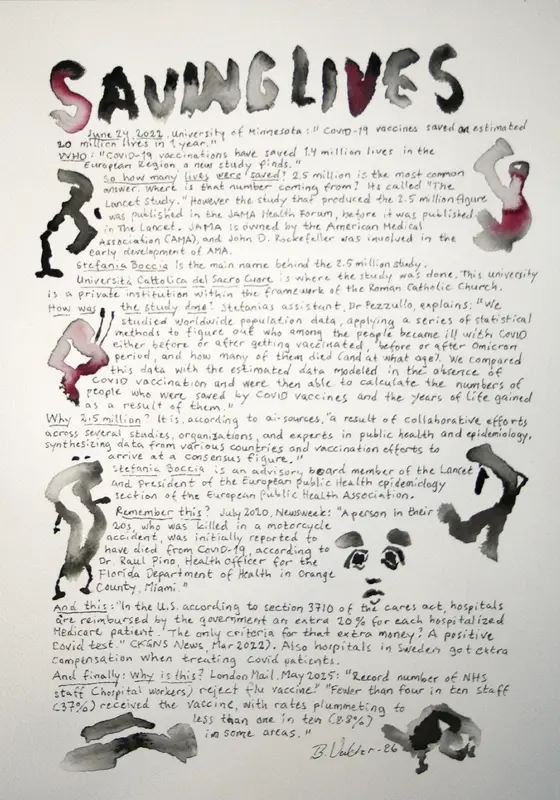 SAVING LIVES
June 24, 2022, University of Minnesota: "Covid-19 vaccines saved an estimated
20 million lives in 1 year."
WHO: "Covid-19 vaccinations have saved 1.4 million lives in the
European Region a new study finds."
So how many lives were saved? 2.5 million is the most common
answer. Where is that number coming from? Its called "The
Lancet Study." However the study that produced the 2.5 million figure
was published in the JAMA Health Forum, before it was published
in The Lancet. JAMA is owned by the American Medical
Association (AMA), and John D. Rockefeller was involved in the
early development of AMA.
Stefania Boccia is the main name behind the 2.5 million study.
Università Cattolica del Sacro Cuore is where the study was done. This university
is a private institution within the framework of the Roman Catholic Church.
How was the study done? Stefanias assistant, Dr Pezzullo, explains: "We
studied worldwide population data, applying a series of statistical
methods to figure out who among the people became ill with Covid
either before or after getting vaccinated, before or after Omicron
period, and how many of them died (and at what age). We compared
this data with the estimated data modeled in the absence of
Covid vaccination and were then able to calculate the numbers of
people who were saved by Covid vaccines and the years of life gained
as a result of them."
Why 2.5 million? It is, according to ai-sources, "a result of collaborative efforts
across several studies, organizations, and experts in public health and epidemiology,
synthesizing data from various countries and vaccination efforts to
arrive at a consensus figure."
Stefania Boccia is an advisory board member of the Lancet
and President of the European public Health epidemiology
section of the European Public Health Association.
Remember this? July 2020, Newsweek: "A person in their
20s, who was killed in a motorcycle
accident, was initially reported to
have died from Covid-19, according to
Dr. Raul Pino, Health Officer for the
Florida Department of Health in Orange
County, Miami."
And this: "In the U.S. according to section 3710 of the cares act, hospitals
are reimbursed by the government an extra 20% for each hospitalized
Medicare patient. The only criteria for that extra money? A positive
Covid test." (KGNS News, Mar 2022). Also hospitals in Sweden got extra
compensation when treating Covid patients.
And finally: Why is this? London Mail. May 2025: "Record number of NHS
staff (hospital workers) reject flu vaccine." "Fewer than four in ten staff
(37%) received the vaccine, with rates plummeting to
less than one in ten (8.8%)
in some areas."
B. -26